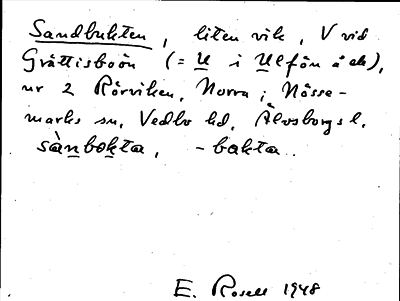 Sandbukten, liten vik, V vid
Gråttisboön (= U i Ulfön å ek),
nr 2 Rörviken, Norra i Nösse-
marks sn, Vedbo hd, Älvsborgs l.
sànbokta, -bokta.
E. Rosell 1948